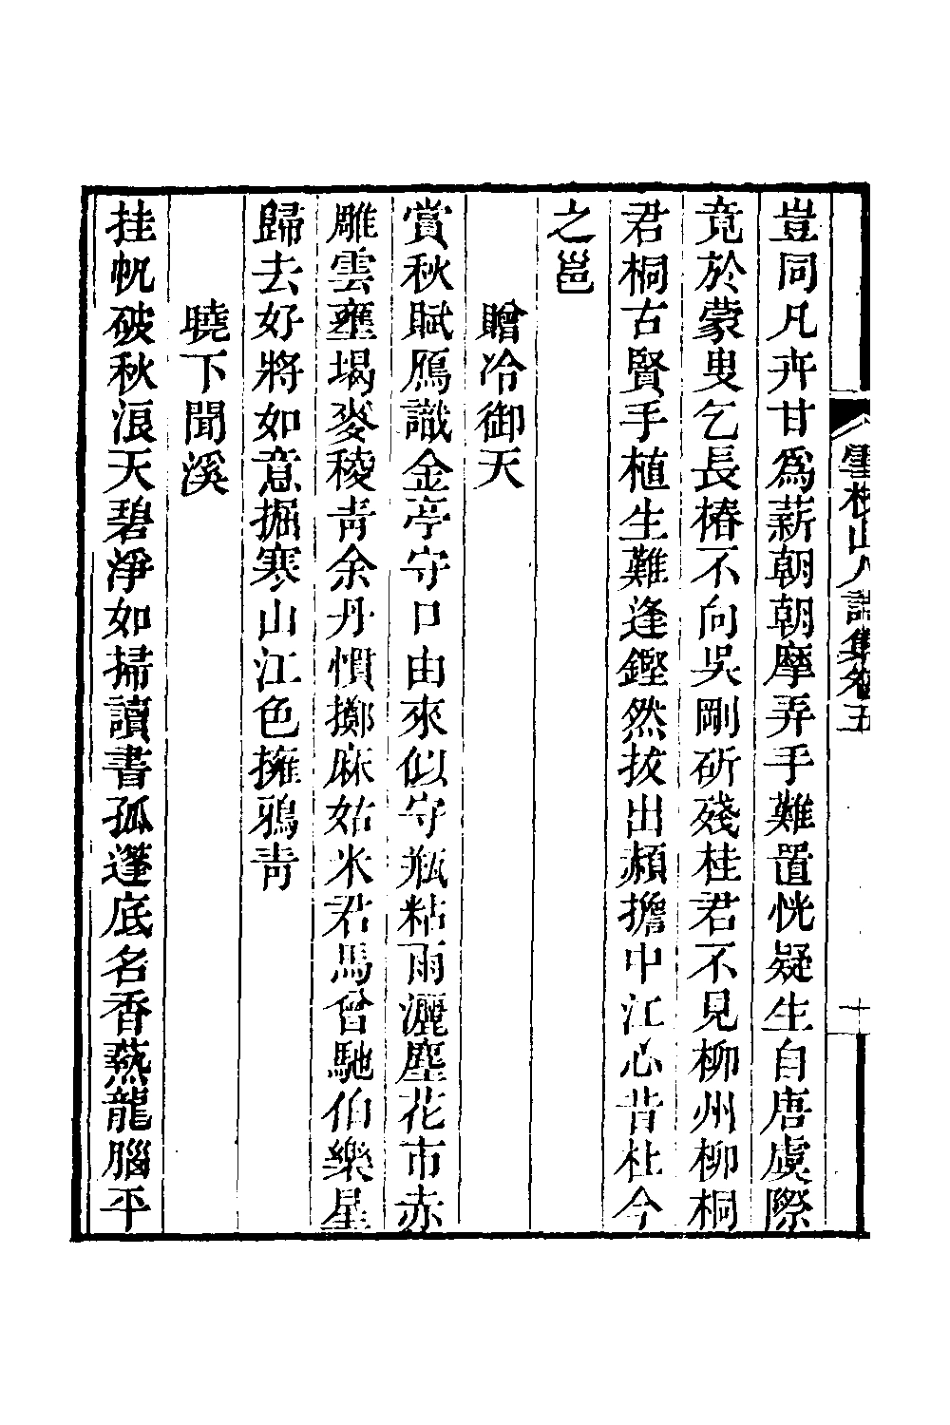 雲山人詩集卷五
十
豈同凡卉甘爲薪朝朝摩弄手難置恍疑生自唐虞際
竟於蒙叟乞長椿不向吳剛斫殘桂君不見柳州柳桐
君桐古賢手植生難逢鏗然拔出頳擔中江心昔杜今
之邕
贈冷御天
賞秋賦鴈識金亭守口由來似守瓶粘雨灑塵花市赤
雕雲壅堨麥稜靑余丹慣擲麻姑米君馬曾馳伯樂星
歸去好將如意掘寒山江色擁鴉靑
曉下聞溪
挂帆破秋浪天碧淨如掃讀書孤蓬底名香爇龍腦平